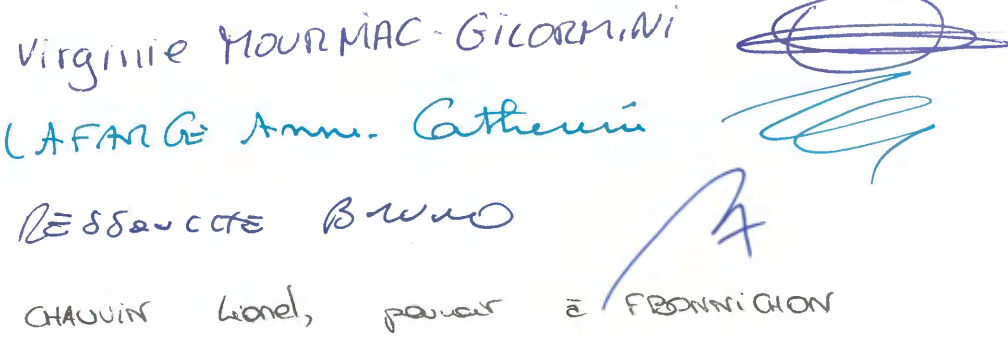 Virginie MOURNIAC-GILORMINI
LAFARGE Anne-Catherine
RESSOUCHE Bruno
CHAUVIN Lionel, pouvoir à F BONNICHON